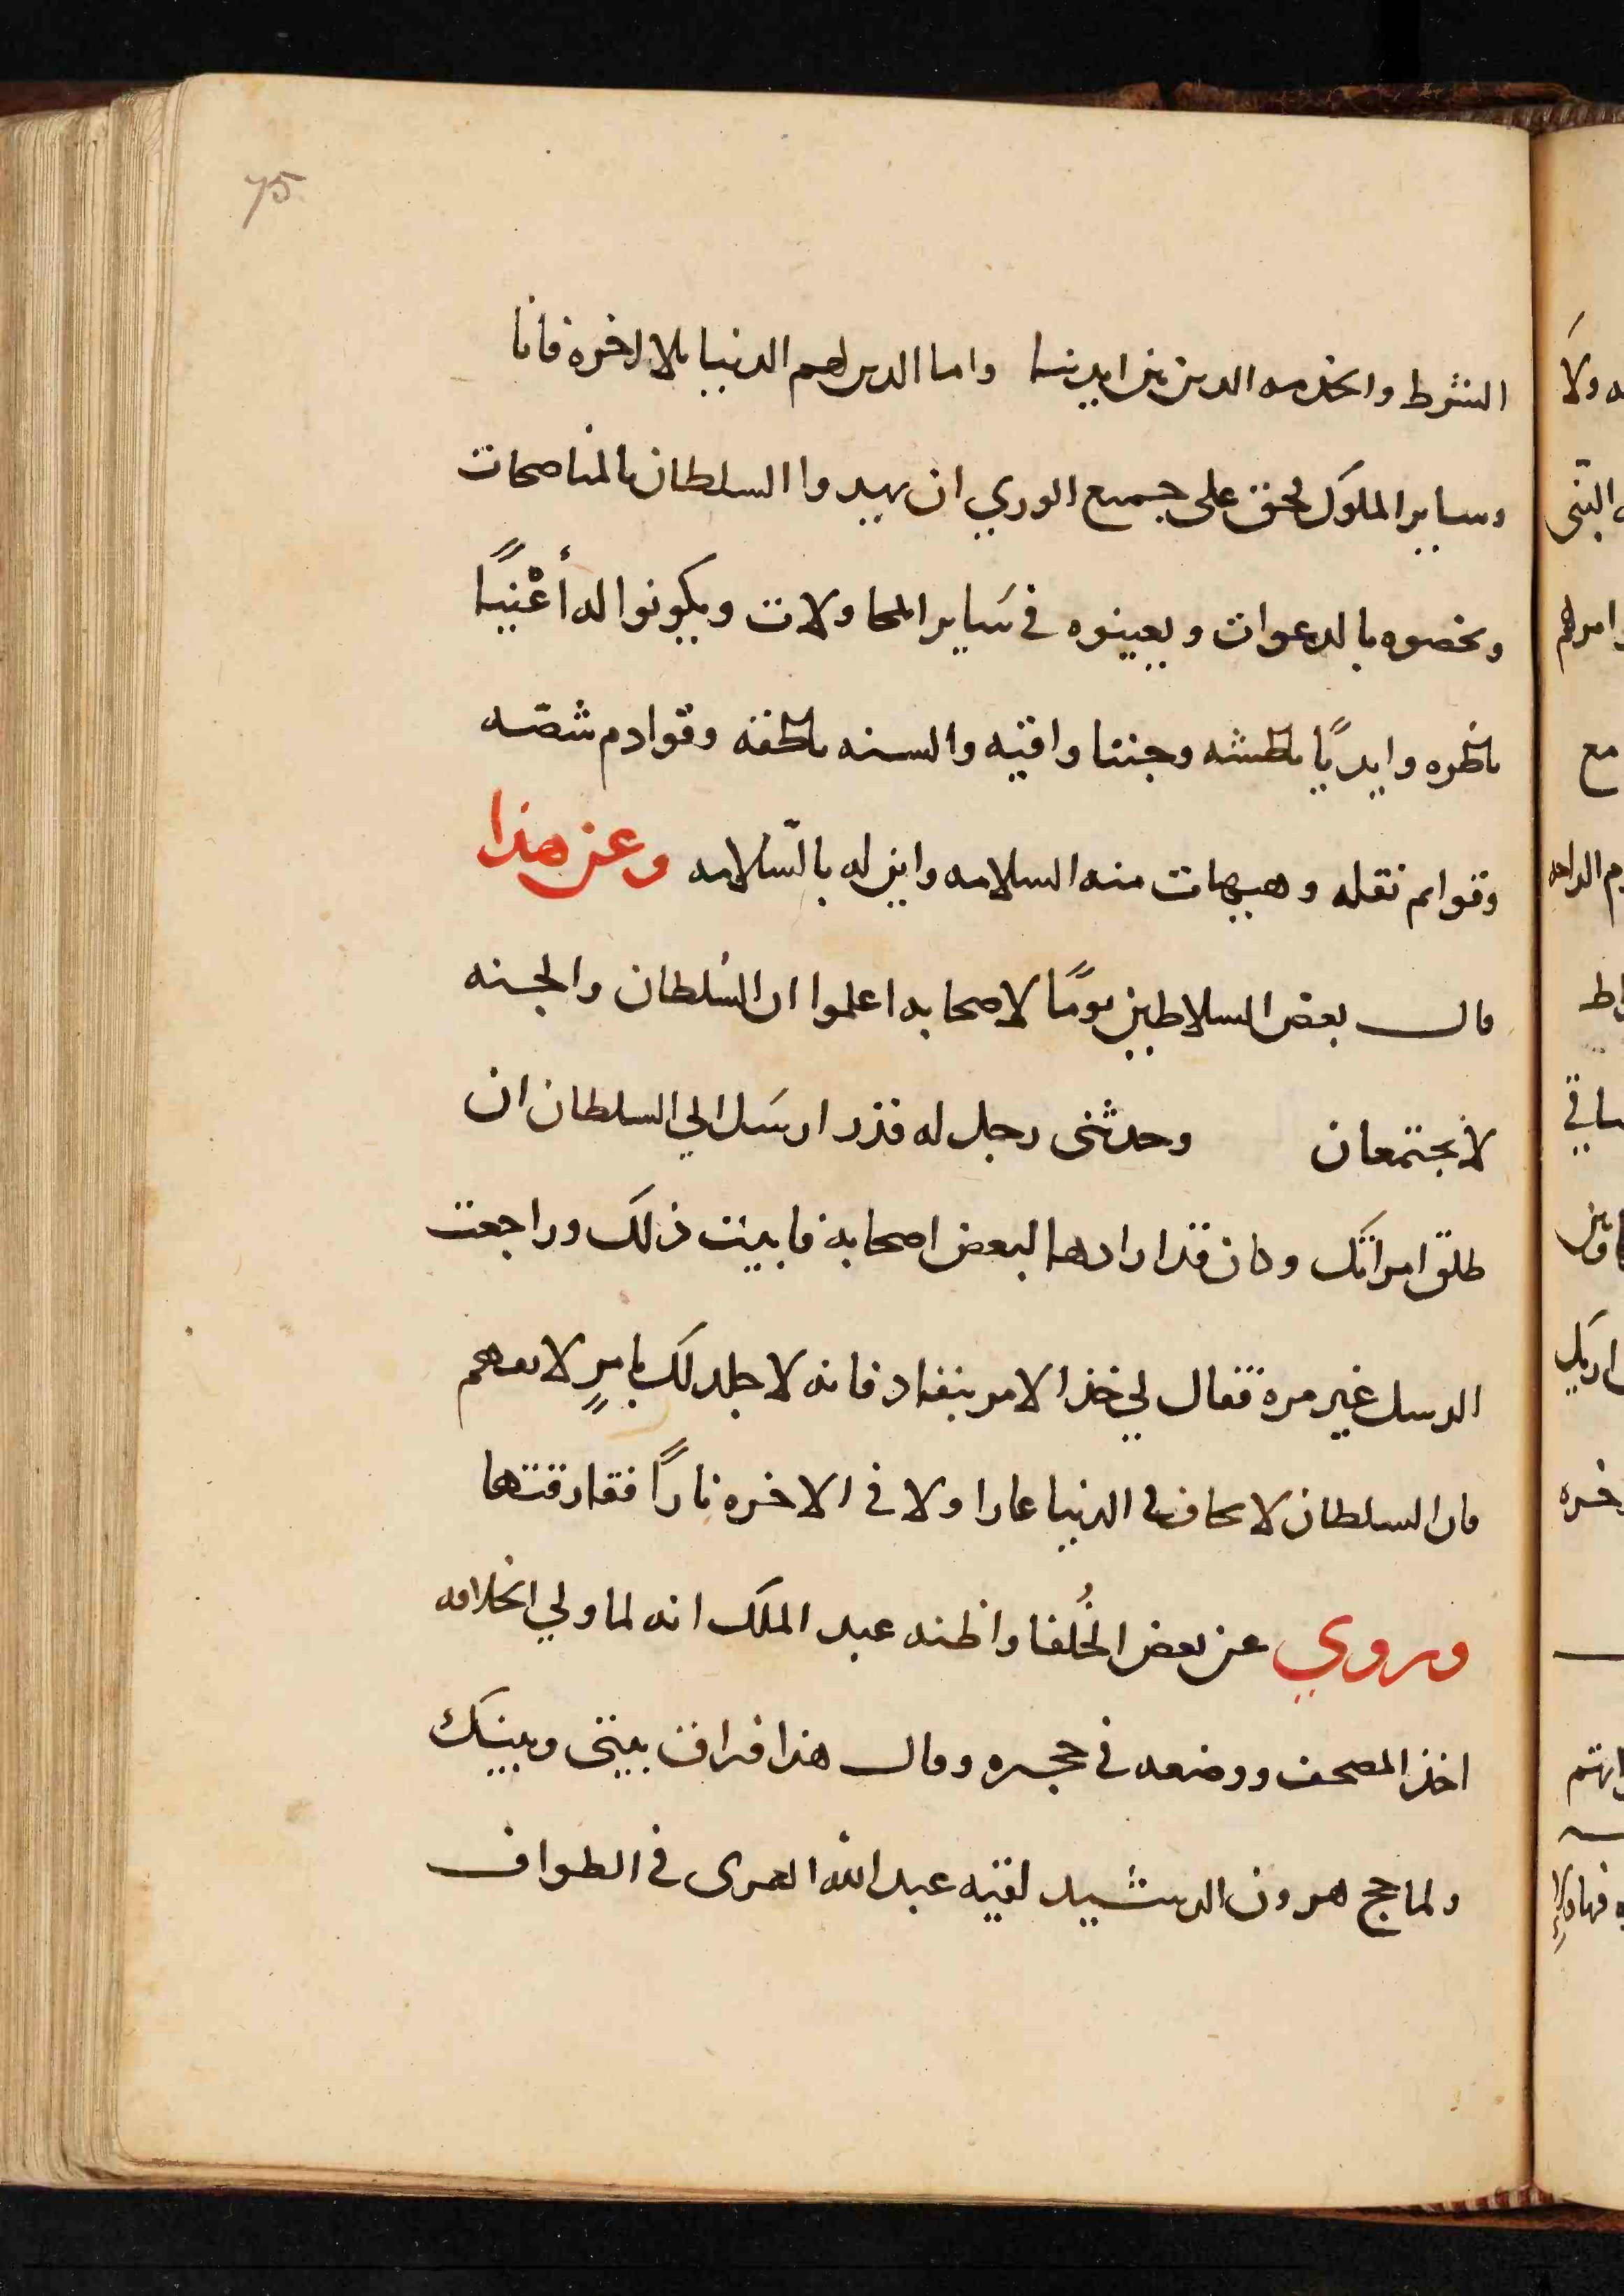 75
الشرط والخدمه الدين بين ايدينا واما الدين لهم الدنيا بلا اخره فانا
وساير الملوك لحق على جميع الوري ان يمدوا السلطان بالمناصحات
ويخصوه بالدعوات ويعينوه في سَاير المحاولات ويكونوا له أعْنيًا
ناظره وايديًا باطشه وجننا واقيه والسنه ناطقه وقوادم
وقوايم نقله وهيهات منه السلامه واين له بالسّلامه وعن هذا
قال بعض السلاطين يومًا لاصحابه اعلموا ان السُلطان والجنه
لا يجتمعان وحدثني رجل له قدر ارسَل الي السلطان ان
طلق امراتك وكان قد ارادها لبعض اصحابه فابيت ذلك وراجعت
الرسل غير مره فقال لي خذ الامر بنفاد فانه لا جلد لك بامرٍ لا
فان السلطان لا يخاف في الدنيا عارا ولا في الاخره نارًا ففارقتها
وروي عن بعض الخُلفا واظنه عبد الملك انه لما ولي الخلافه
اخذ المصحف ووضعه في حجره وقال هذا فراق بيني وبينك
ولما حج هرون الرشيد لقيه عبد الله العمري في الطواف